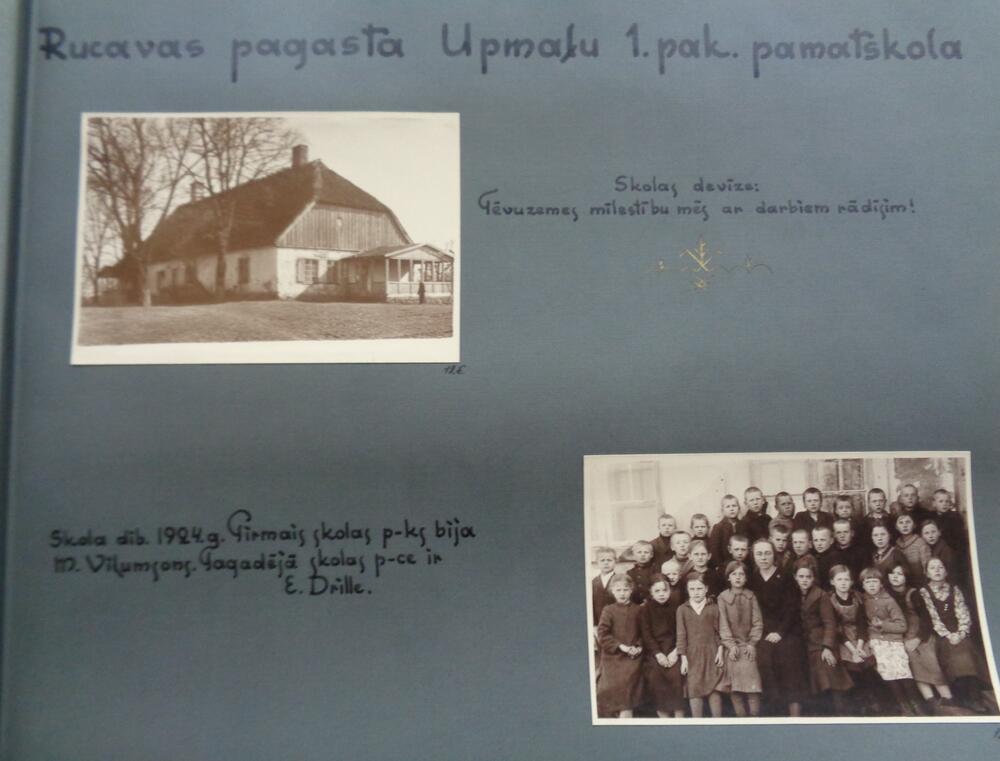 Rucavas pagasta Upmaļu 1. pak. pamatskola
Skolas devīze:
Tēvuzemes mīlestību mēs ar darbiem rādīsim!
Skola dib. 1924.g. Pirmais skolas p-ks bija
M. Viļumsons. Tagadējā skolas p-ce ir
E. Drille.